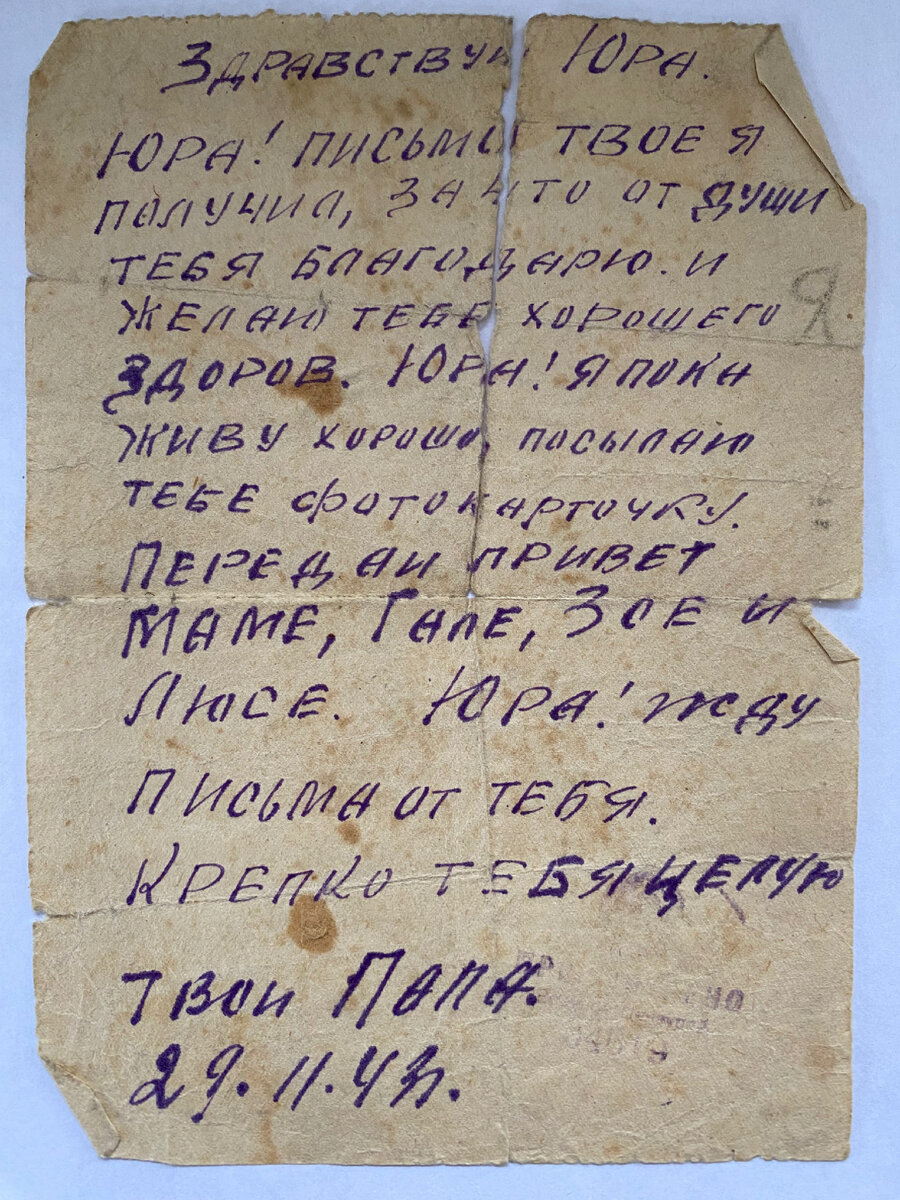 Здравствуй Юра.
Юра! письмо твое я
получил, за что от души
тебя благодарю. и
желаю тебе хорошего
здоров. Юра! я пока
живу хорошо, посылаю
тебе фотокарточку.
Передаи привет
маме, Гале, Зое и
Люсе. Юра! жду
письма от тебя.
Крепко тебя целую
твои Папа.
29.11.43г.